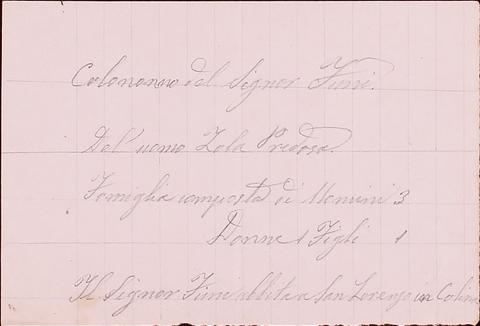 Colonanno del Signor Fini.
Del'uomo Zola Predosa.
Famiglia composta di Uomini 3
Donne 1 Figli 1
Il Signor Fini abbita a San Lorenzo in Colina